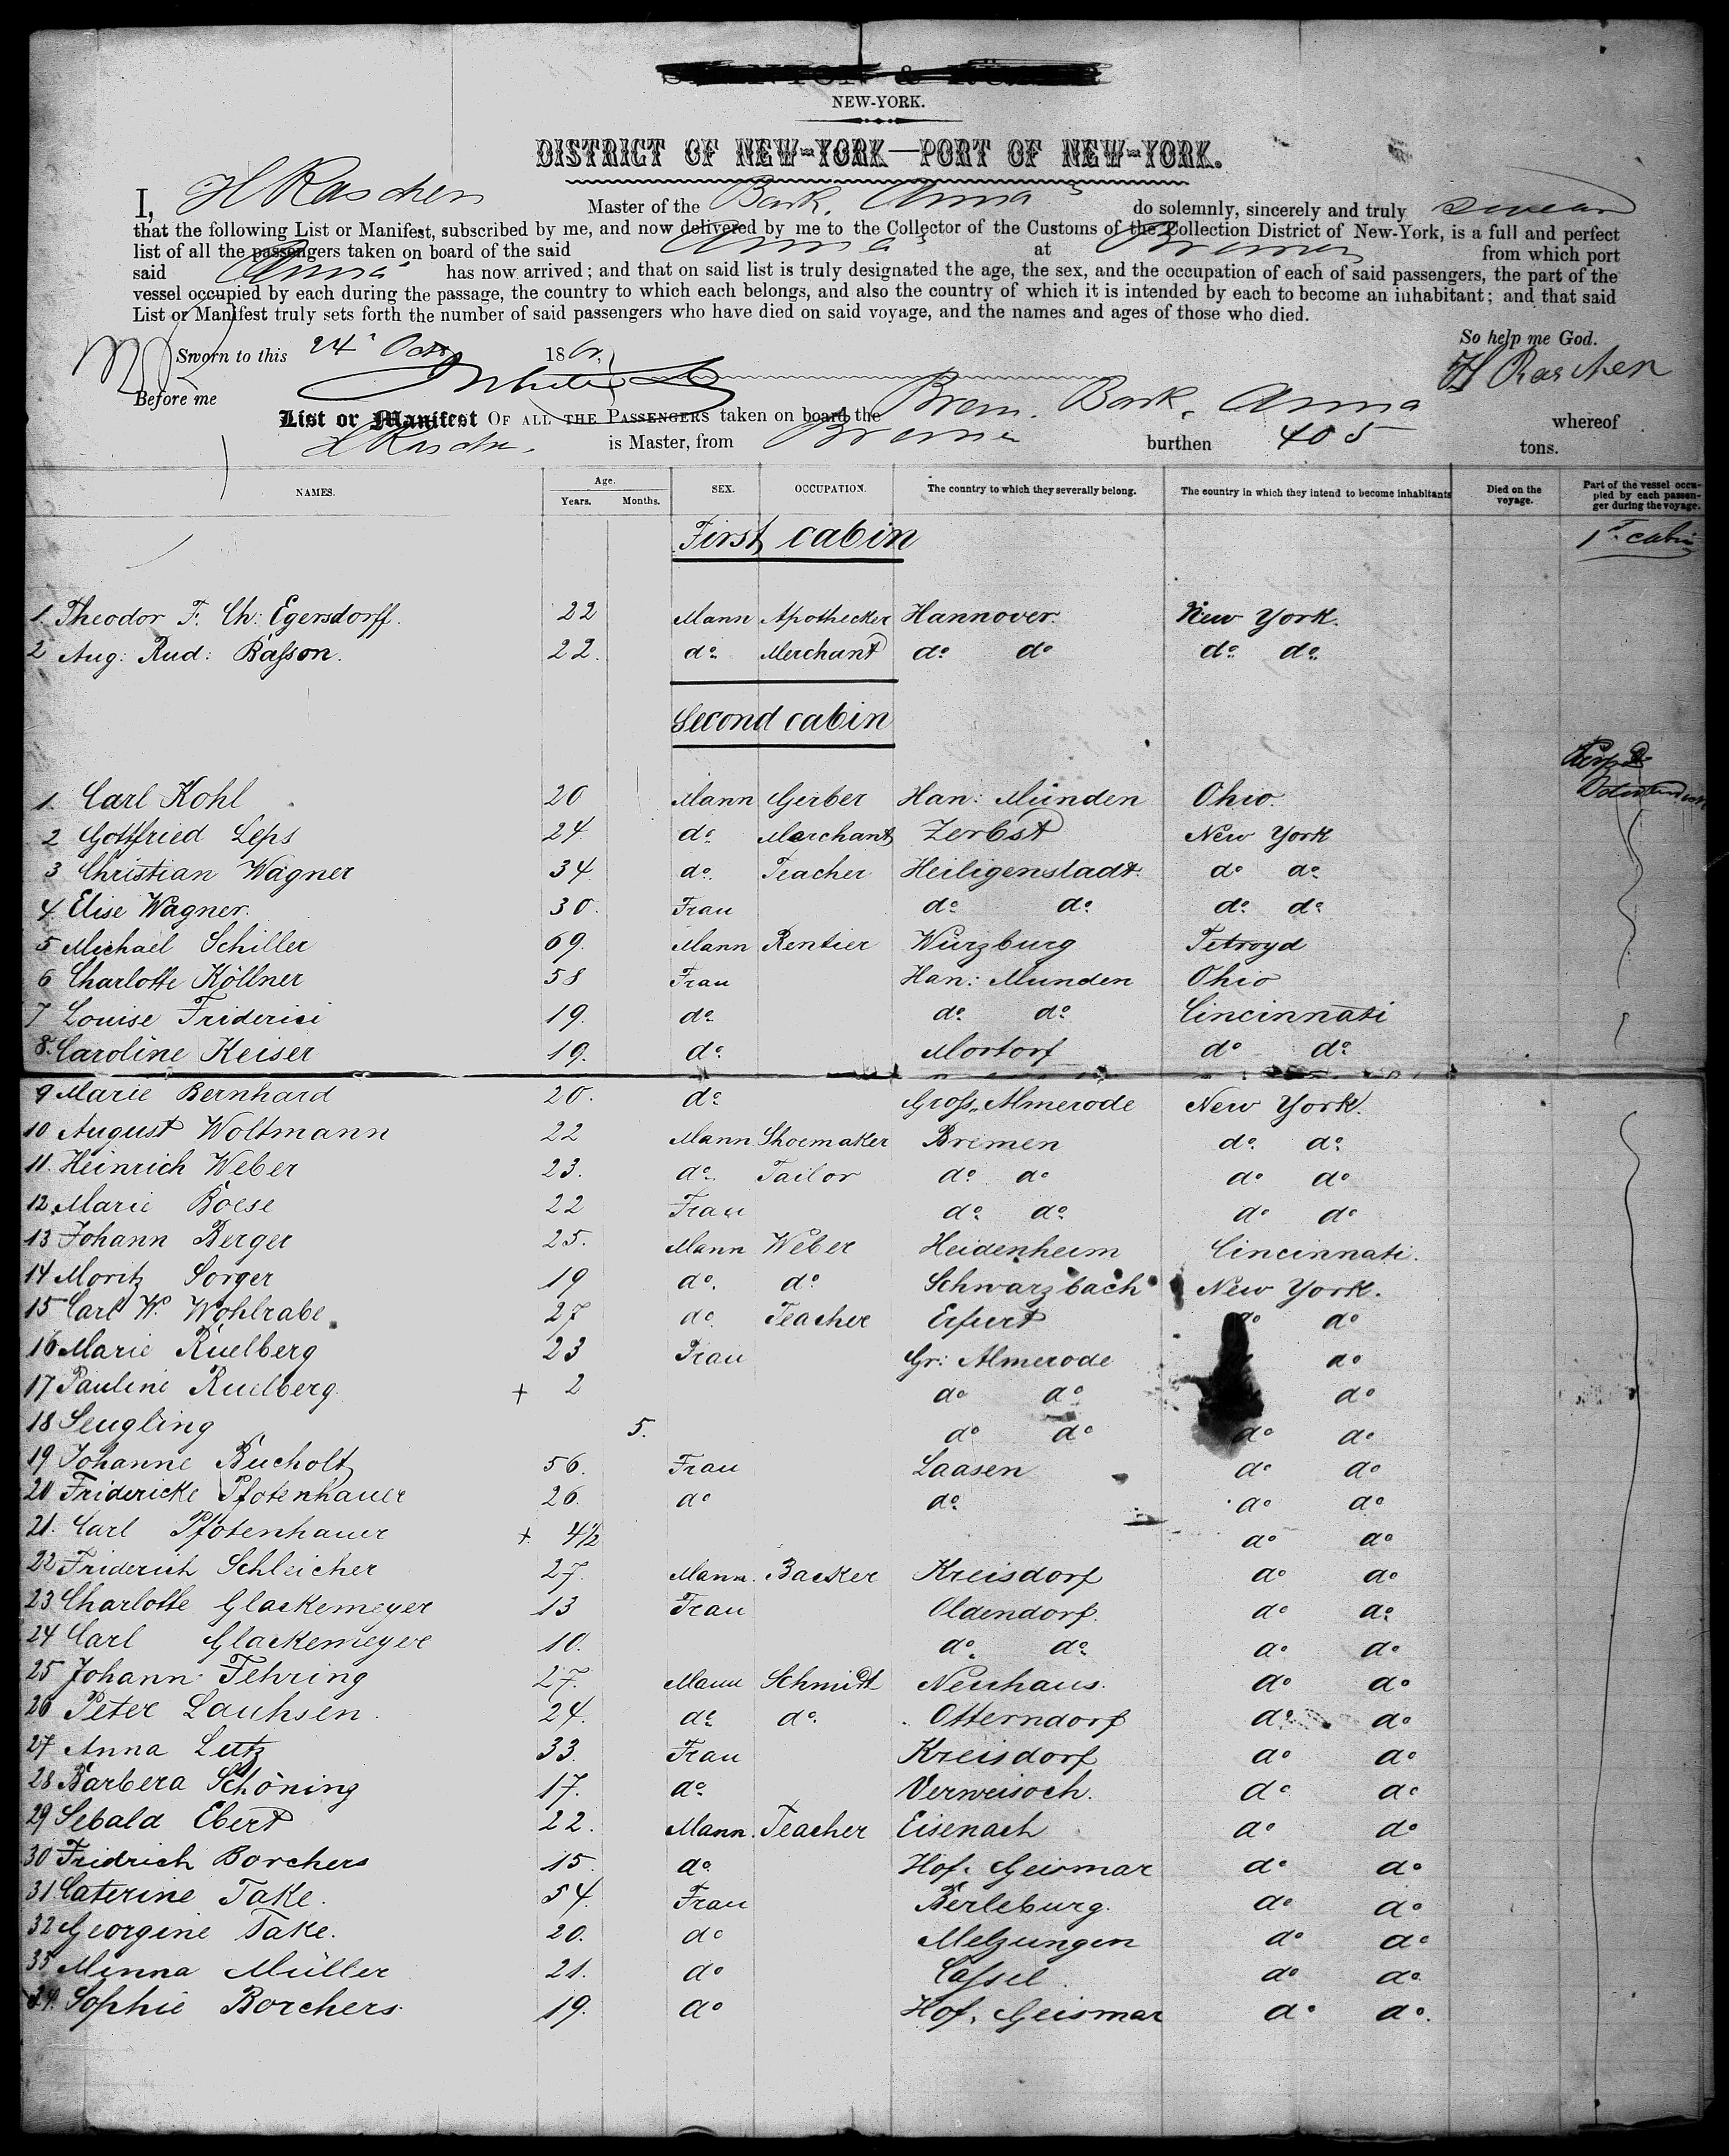 NEW-YORK.
DISTRICT OF NEW-YORK—PORT OF NEW-YORK.
I, H Raschen Master of the Bark, Anna do solemnly, sincerely and truly swear
that the following List or Manifest, subscribed by me, and now delivered by me to the Collector of the Customs of the Collection District of New-York, is a full and perfect
list of all the passengers taken on board of the said Anna at Bremen from which port
said Anna has now arrived; and that on said list is truly designated the age, the sex, and the occupation of each of said passengers, the part of the
vessel occupied by each during the passage, the country to which each belongs, and also the country of which it is intended by each to become an inhabitant; and that said
List or Manifest truly sets forth the number of said passengers who have died on said voyage, and the names and ages of those who died.
So help me God.
Sworn to this 24 Oct 186
H Raschen
Before me
List or Manifest OF ALL THE PASSENGERS taken on board the Brem. Bark, Anna whereof
H Raschen is Master, from Bremen burthen 405 tons.
NAMES. Age. Years. Months. SEX. OCCUPATION. The country to which they severally belong. The country in which they intend to become inhabitants Died on the voyage. Part of the vessel occupied by each passenger during the voyage.
First cabin 1st cabin
1. Theodor F. Ch: Egersdorff. 22 Mann Apothecker Hannover. New York.
2 Aug: Rud: Baſson. 22. do Merchant do do do do
Second cabin
1. Carl Kohl 20 Mann Gerber Han: Münden Ohio.
2 Gottfried Leps 24. do Merchant Zerbst New York
3 Christian Wagner 34. do. Teacher Heiligenstadt. do do
4 Elise Wagner. 30. Frau do do do do
5 Michael Schiller 69. Mann Rentier Würzburg Tetroyd
6 Charlotte Köllner 58 Frau Han: Munden Ohio
7 Louise Friderici 19. do do do Cincinnati
8. Caroline Keiser 19. do. Mortorf do do
9 Marie Bernhard 20. do Groſs, Almerode New York.
10 August Woltmann 22 Mann Shoemaker Bremen do do
11. Heinrich Weber 23. do Tailor do do do do
12. Marie Boese 22 Frau do do do do
13 Johann Berger 25. Mann Weber Heidenheim Cincinnati.
14 Moritz Sorger 19 do. do Schwarzbach New York.
15 Carl W. Wohlrabe 27 do Teacher Erfurt do do
16 Marie Ruelberg 23 Frau Gr: Almerode do
17 Pauline Ruelberg + 2 do do do
18 Seugling 5. do do do do
19 Johanne Bucholtz 56. Frau Laasen do do
20 Fridericke Pfotenhauer 26. do do do do
21. Carl Pfotenhauer + 4½ do do
22 Friderich Schleicher 27. Mann. Backer Kreisdorf do do
23 Charlotte Glackemeyer 13 Frau Oldendorf. do do
24 Carl Glackemeyer 10. do do do do
25 Johann Fehring 27. Mann Schmidt Neuhaus. do do
26 Peter Lauhsen. 24. do do. Otterndorf do do
27 Anna Lutz 33. Frau Kreisdorf do do
28 Barbera Schöning 17. do Verweisoch. do do
29 Sebald Ebert 22. Mann. Teacher Eisenach do do
30 Fridrich Borchers 15. do Hof. Geismar do do
31 Caterine Take. 54. Frau Berleburg. do do
32 Georgine Take. 20. do Melzungen do do
33 Minna Müller 21. do Caſsel. do do
34. Sophie Borchers. 19. do Hof. Geismar do do.